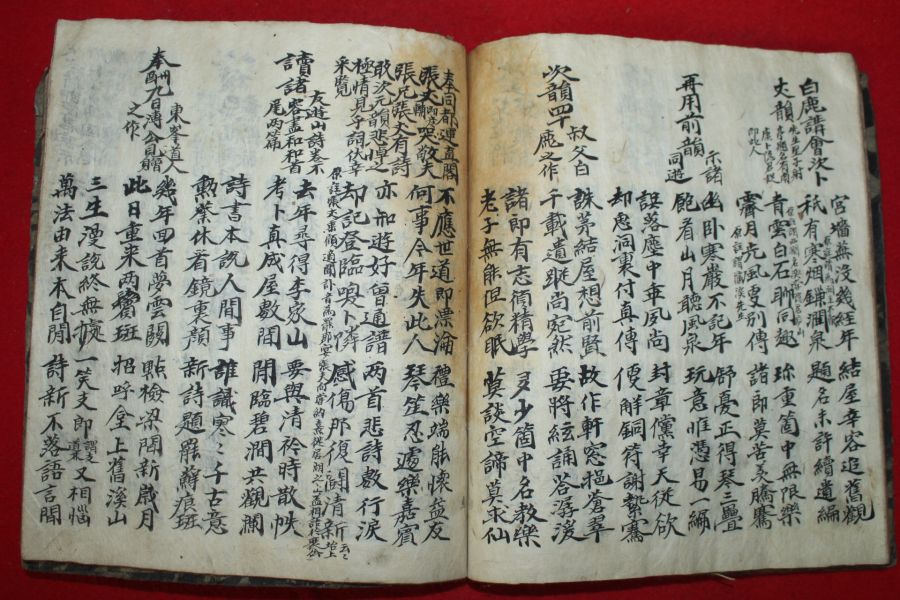 白鹿講會次卜
丈韻
宮墻蕪沒幾經年 結屋幸容追舊觀
秖有寒烟鎖澗泉 題名未許續遺編
青雲白石聊同趣 珍重箇中無限樂
霽月光風更別傳 諸郎莫苦羨騰騫
再用前韻 示諸同遊
幽卧寒巖不記年 舒憂正得琴三疊
飽看山月聽風泉 玩意惟憑易一編
誤落塵中乖夙尚 封章儻幸天從欲
却思洞裏付真傳 便解銅符謝縶騫
次韻四十叔父白鹿之作
誅茅結屋想前賢 故作軒窓挹蒼翠
千載遺蹤尚宛然 要將絃誦答潺湲
諸郎有志須精學 多少箇中名教樂
老子無能但欲眠 莫談空諦莫求仙
奉同都運直閣
張丈哭敬夫
張兄張丈有詩
敢次元韻悲悼之
極情見乎詞伏幸
采覽
不應世道即漂淪 禮樂端能懷益友
何事今年失此人 琴笙忍遽樂嘉賓
亦知遊好曾通譜 兩首悲詩數行淚
却記登臨喚卜隣 感傷那復鬪清新
讀諸友遊山詩卷不
容盡和和首
尾兩篇
去年尋得李家山 要與清衿時散帙
考卜真成屋數間 開臨碧澗共觀瀾
詩書本說人間事 誰識寒寒千古意
勲業休看鏡裏顔 新詩題罷蘚痕班
奉酬九日東峯道人
溥公見贈
之作
幾年回首夢雲關 點檢梁間新歲月
此日重来兩鬢班 招呼全上舊溪山
三生漫說終無據 一笑支郎又相惱
萬法由来本自閒 詩新不落語言間